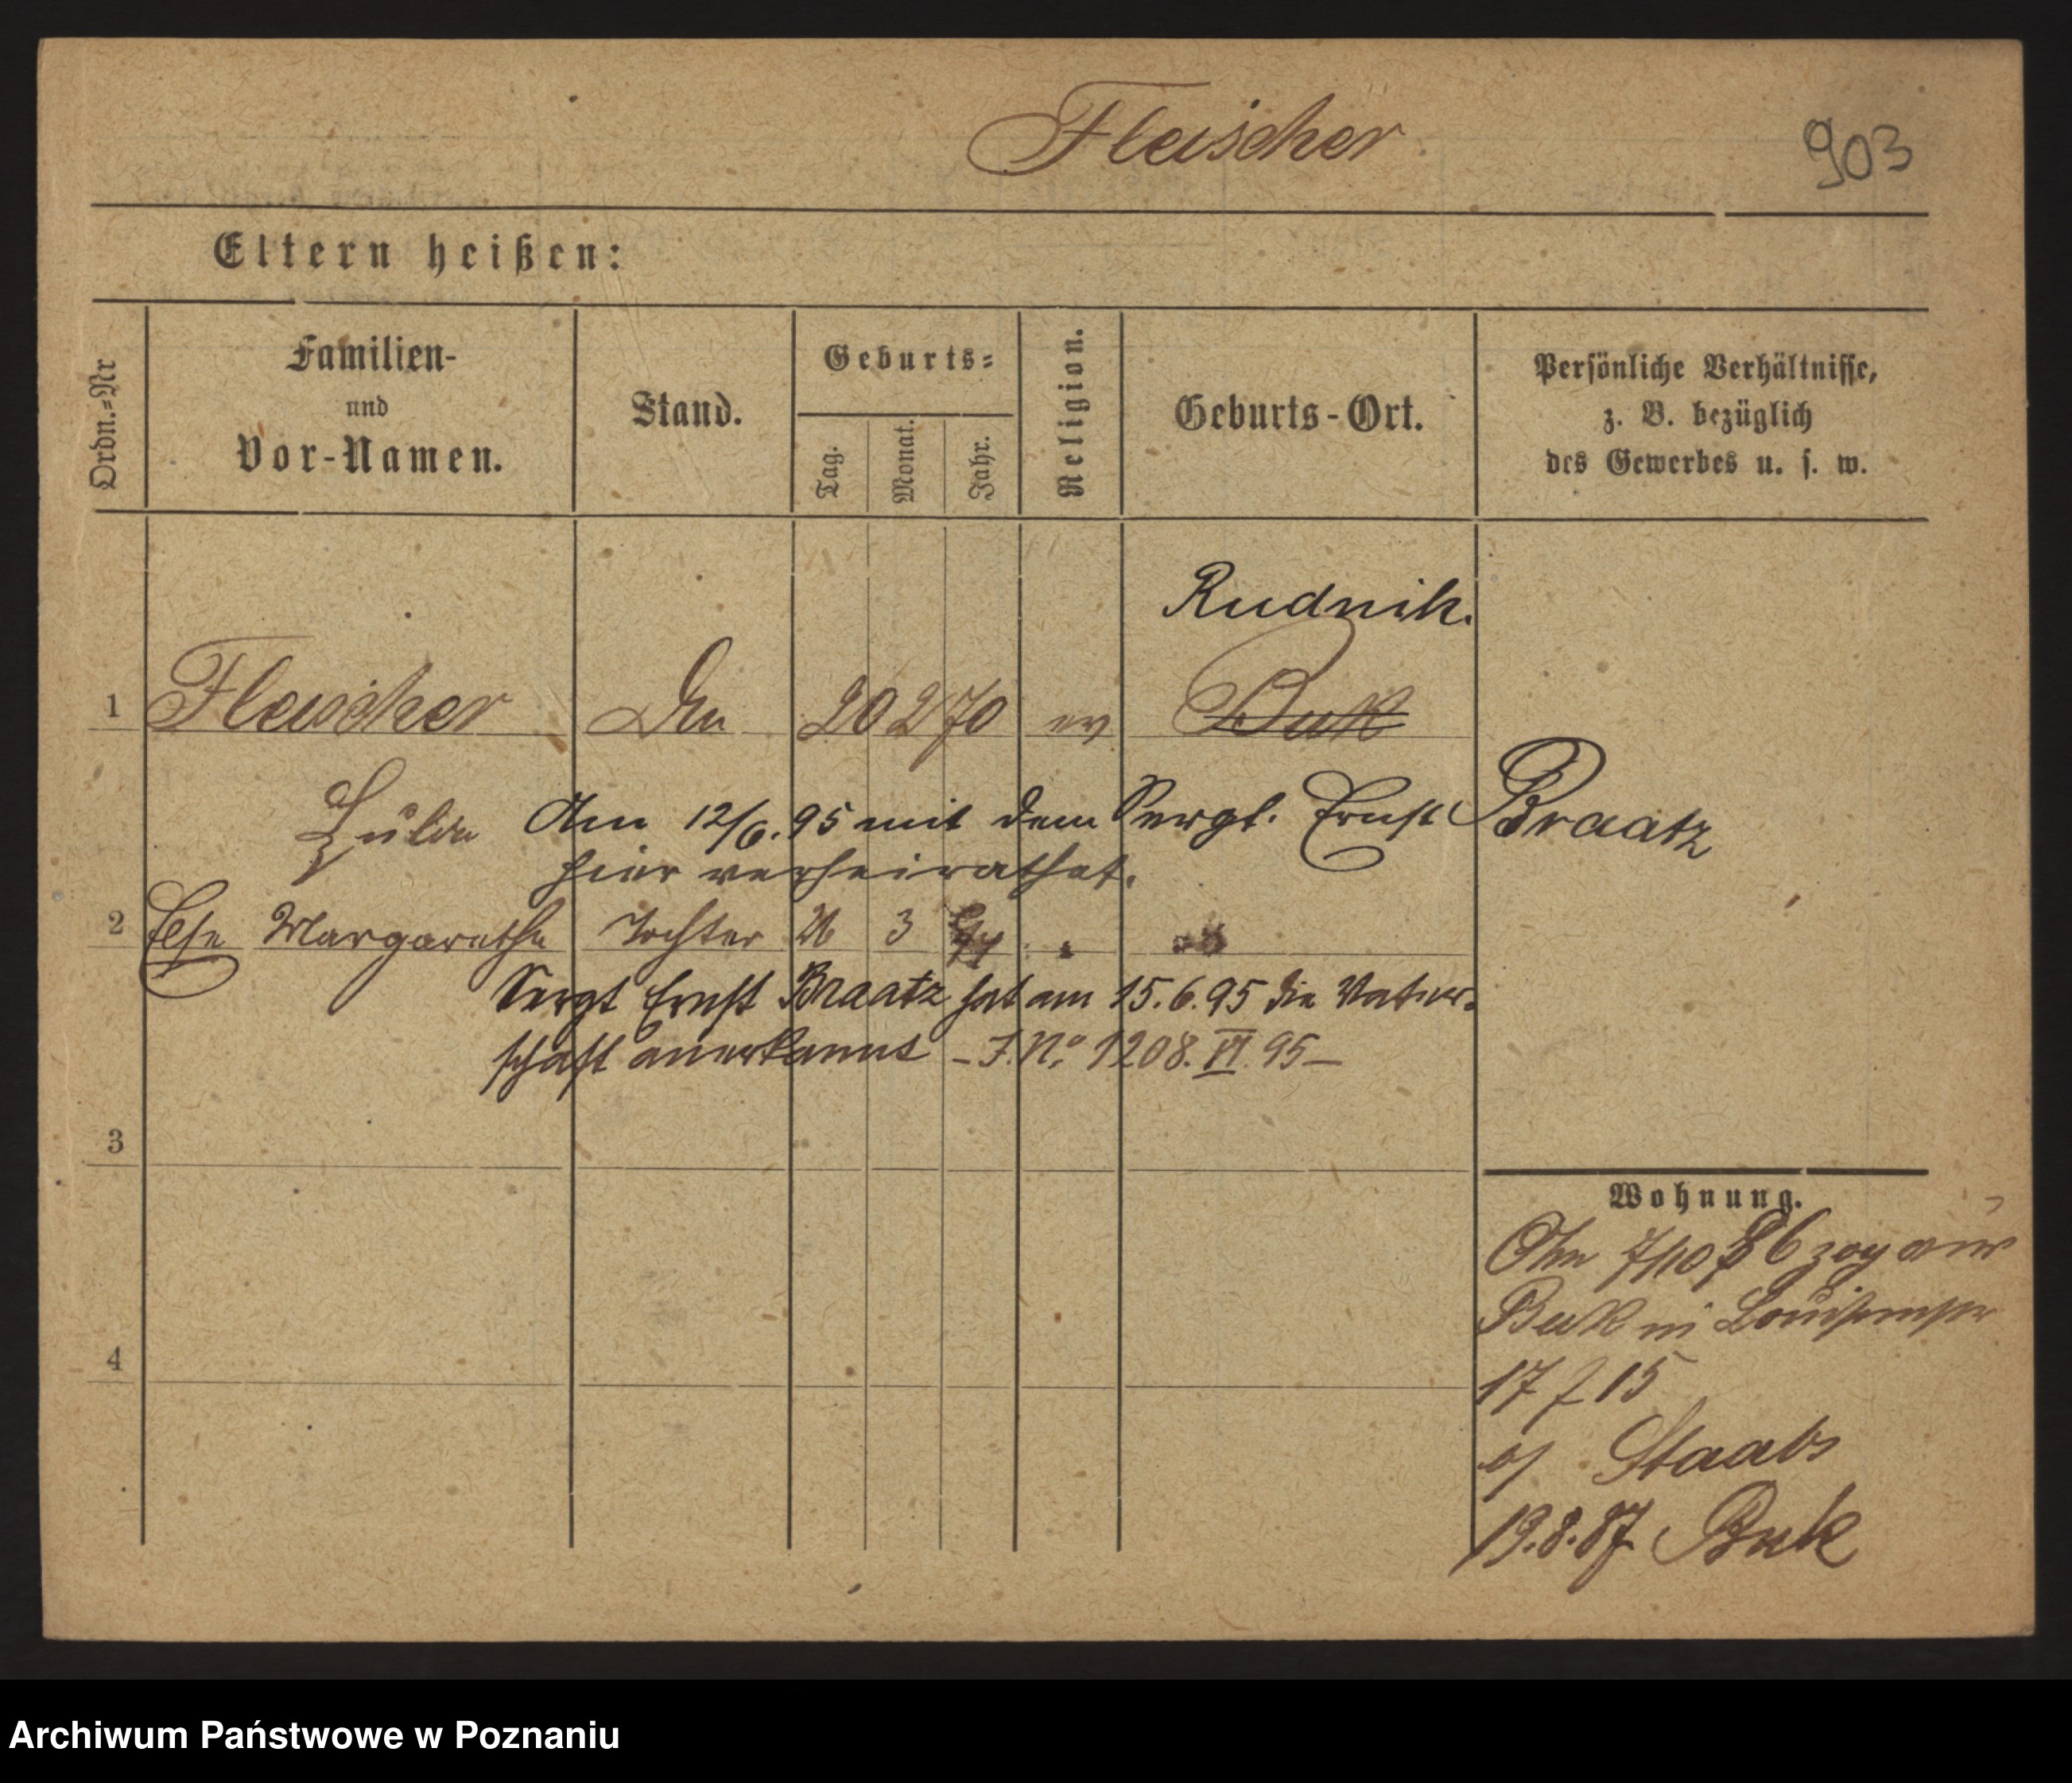 Fleischer
903
Eltern heißen:
Ordn.=Nr
Familien-
und
Vor-Namen.
Stand.
Geburts=
Tag.
Monat.
Jahr.
Religion.
Geburts-Ort.
Persönliche Verhältnisse,
z. B. bezüglich
des Gewerbes u. s. w.
Rudnik.
1 Fleischer 20 2 70 ev Buk
Am 12/6. 95 mit dem Sergt. Ernst Braatz
hier verheirathet.
2 Margarethe Tochter 26 3
Sergt Ernst Braatz hat am 15.6.95 die Vater-
schaft anerkannt – J.No. 1208. VI. 95 –
3
4
Wohnung.
7/10 86 zog aus
Buk in Louisenstr
17 15
b/ Staabs
19.8.87 Buk
Archiwum Państwowe w Poznaniu